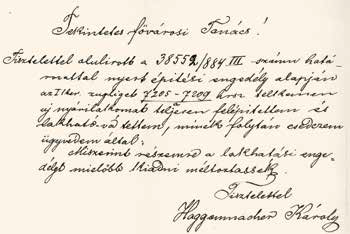 Tekintetes fővárosi Tanács!
Tisztelettel alulirott a 38552/884 III. számu hatá-
rozattal nyert építési engedély alapján
az II ker. zugligeti 7205-7209 hrsz. telkemen
uj nyárilakomat teljesen felépitettem és
lakhatóvá tettem, minek folytán esedezem
ügyvédem által:
Miszerint részemre a lakhatási enge-
délyt mielőbb kiadni méltóztassék.
Tisztelettel
Haggenmacher Károly